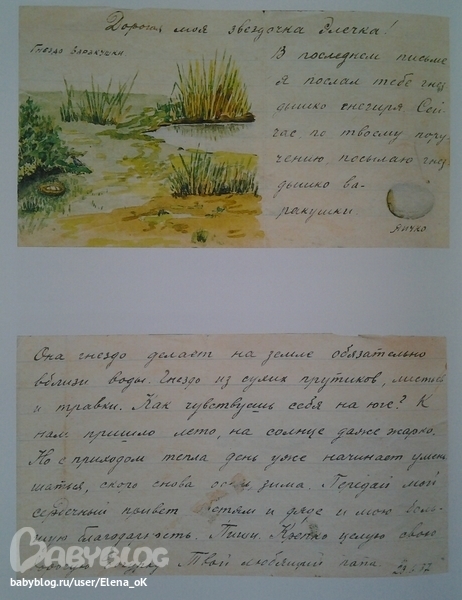 Дорогая моя звездочка Элечка!
Гнездо Варакушки
В последнем письме
я послал тебе гнез
дышко снегиря. Сей
час по твоему пору
чению посылаю гнез
дышко ва-
ракушки
Яичко
Она гнездо делает на земле обязательно
вблизи воды. Гнездо из сухих прутиков, листьев
и травки. Как чувствуешь себя на юге? К
нам пришло лето, на солнце даже жарко.
Но с приходом тепла день уже начинает умень
шаться, скоро снова осень, зима. Передай мой
сердечный привет тетям и дяде и мою боль
шую благодарность. Пиши. Крепко целую свою
Твой любящий папа
BABYBLOG
babyblog.ru/user/Elena_oK